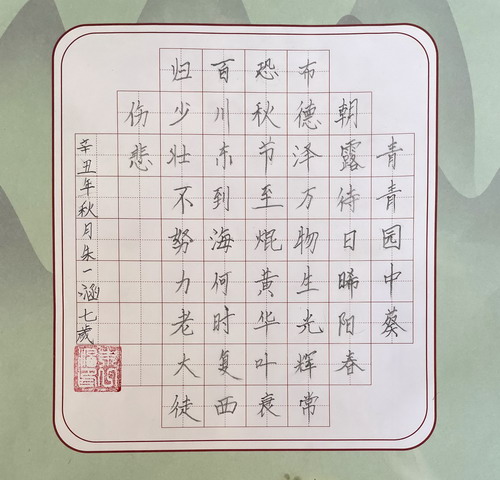 青青园中葵
朝露待日晞阳春
布德泽万物生光辉常
恐秋节至焜黄华叶衰
百川东到海何时复西
归少壮不努力老大徒
伤悲
辛丑年秋月朱一涵七歲